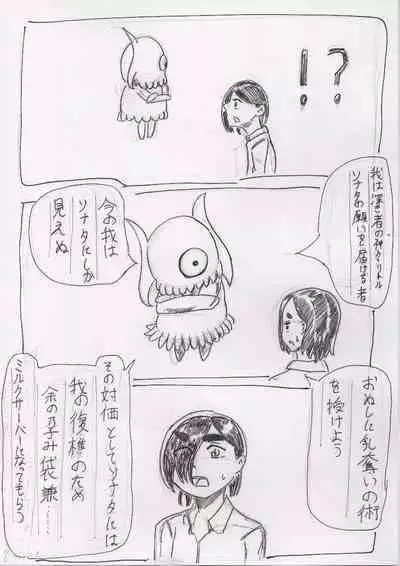 !?
我は深き者の神クリトル
ソナタの願いを届ける者
今の我は
ソナタにしか
見えぬ
おぬしに乳奪いの術
を授けよう
その対価としてソナタには
我の復権のため
余の孕み袋兼……
ミルクサーバーになってもらう